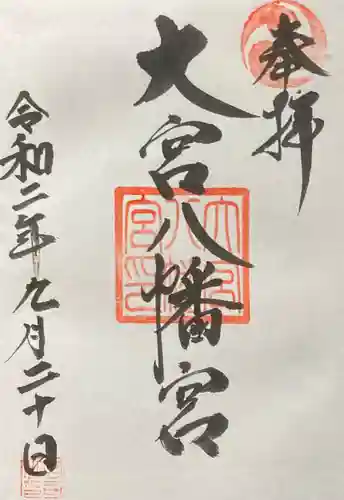 奉拝
大宮八幡宮
令和二年九月二十日